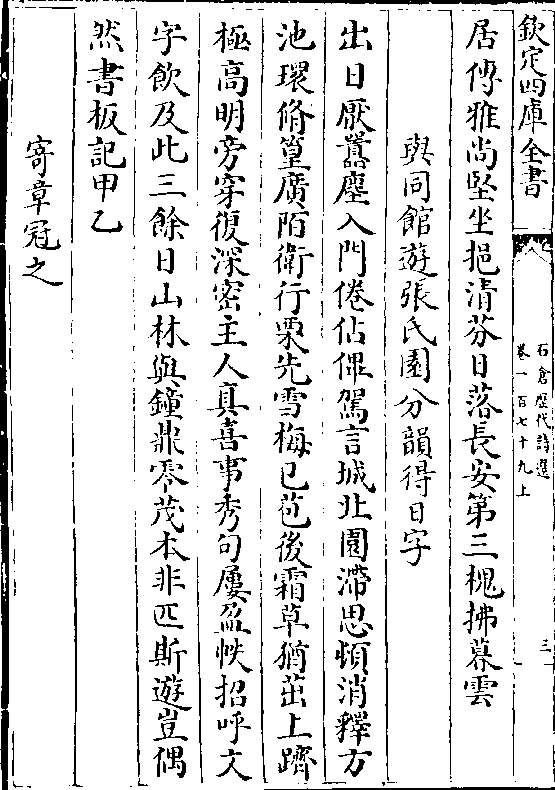 欽定四庫全書
石倉歷代詩選
卷一百七十九上
三
居傳雅尚堅坐挹清芬日落長安第三槐拂暮雲
與同館遊張氏園分韻得日字
出日厭囂塵入門倦佔俾駕言城北園滯思頓消釋方
池環脩篁廣陌衛行栗先雪梅已苞後霜草猶茁上躋
極高明旁穿復深密主人真喜事秀句屢盈帙招呼文
字飲及此三餘日山林與鐘鼎零茂本非匹斯遊豈偶
然書板記甲乙
寄章冠之